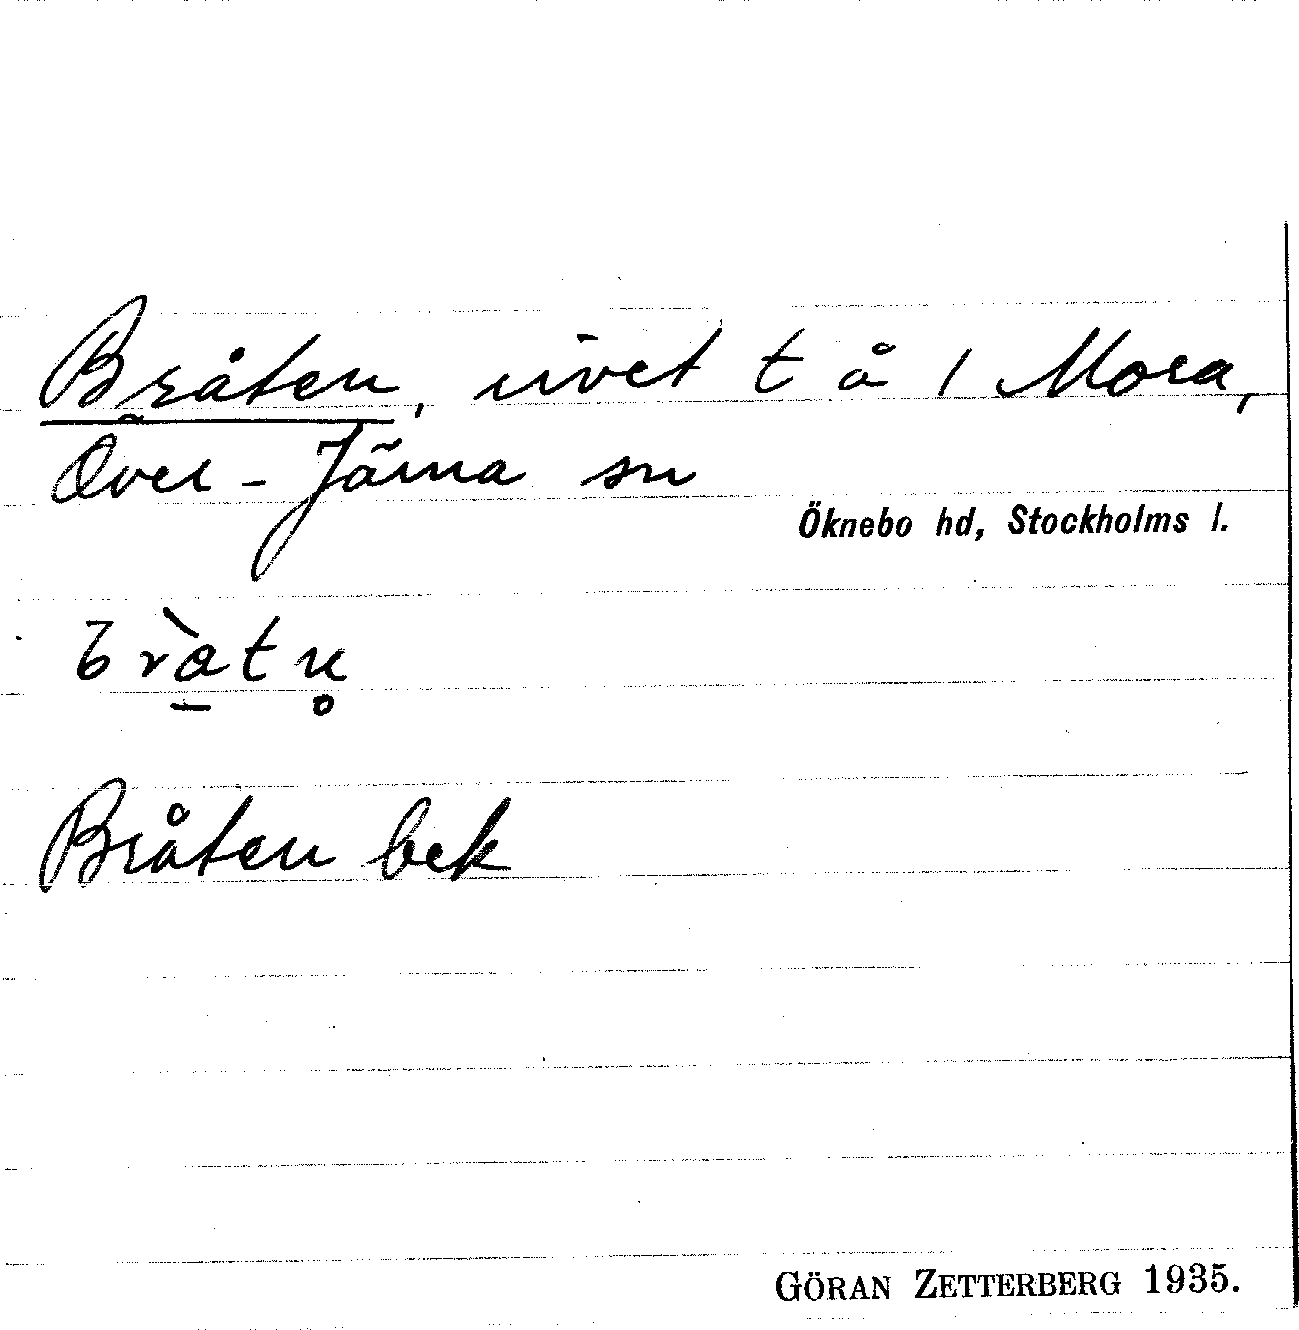 Bråten, rivet t å 1 Mora,
Över-Järna sn
Öknebo hd, Stockholms l.
Bråten bek
GÖRAN ZETTERBERG 1935.